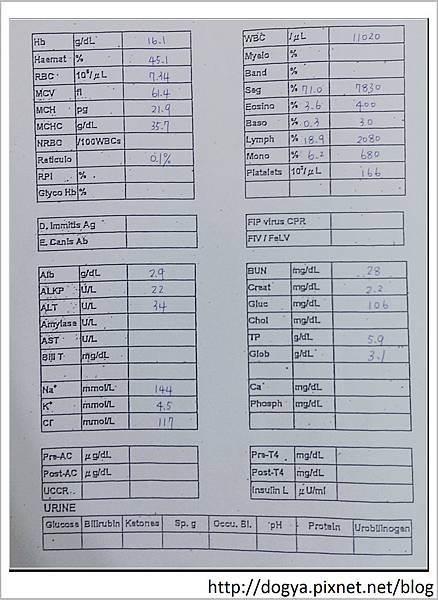 Hb g/dL 16.1
Haemat % 45.1
RBC 10⁶/μL 7.34
MCV fl 61.4
MCH pg 21.9
MCHC g/dL 35.7
NRBC /100WBCs
Reticulo 0.1%
RPI %
Glyco Hb %
WBC /μL 11020
Myelo %
Band %
Seg % 71.0 7830
Eosino % 3.6 400
Baso % 0.3 30
Lymph % 18.9 2080
Mono % 6.2 680
Platelets 10³/μL 166
D. Immitis Ag
E. Canis Ab
FIP virus CPR
FIV / FeLV
Alb g/dL 2.9
ALKP U/L 22
ALT U/L 34
Amylase U/L
AST U/L
Bili T mg/dL
Na⁺ mmol/L 144
K⁺ mmol/L 4.5
Cl⁻ mmol/L 117
BUN mg/dL 28
Creat mg/dL 2.2
Gluc mg/dL 106
Chol mg/dL
TP g/dL 5.9
Glob g/dL 3.1
Ca mg/dL
Phosph mg/dL
Pre-AC μg/dL
Post-AC μg/dL
UCCR
Pre-T4 mg/dL
Post-T4 mg/dL
Insulin L μU/ml
URINE
Glucose Bilirubin Ketones Sp. g Occu. Bl. pH Protein Urobilinogen
http://dogya.pixnet.net/blog